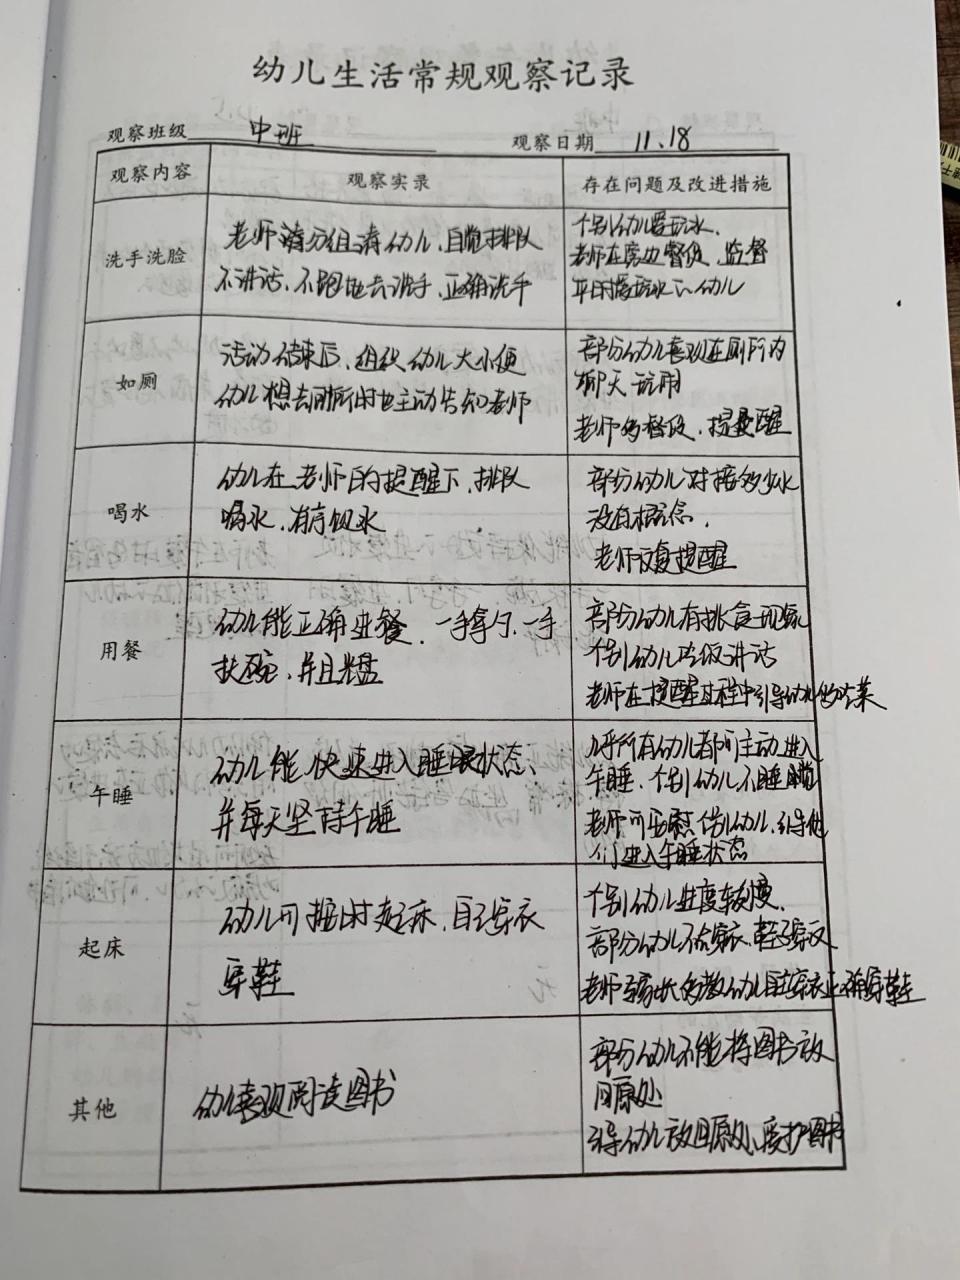 幼儿生活常规观察记录
观察班级 中班 观察日期 11.18
观察内容 观察实录 存在问题及改进措施
洗手洗脸
老师请分组请幼儿自觉排队
不讲话、不跑地去洗手、正确洗手
个别幼儿爱玩水、
老师在旁边督促、监督
平时爱玩水的幼儿
如厕
活动结束后、组织幼儿大小便
幼儿想去厕所时也主动告知老师
部分幼儿喜欢在厕所内
聊天玩闹
老师多督促、提醒
喝水
幼儿在老师的提醒下、排队
喝水、有序饮水
部分幼儿对接多少水
没有概念、
老师反复提醒
用餐
幼儿能正确进餐、一手拿勺、一手
扶碗、并且光盘
部分幼儿有挑食现象
个别幼儿吃饭讲话
老师在提醒过程中引导幼儿多吃菜
午睡
幼儿能快速进入睡眠状态、
并每天坚持午睡
几乎所有幼儿都可主动进入
午睡、个别幼儿不睡觉
老师可安慰个别幼儿、引导他
们进入午睡状态
起床
幼儿可按时起床、自己穿衣
穿鞋
个别幼儿进度较慢、
部分幼儿不会穿衣、鞋子穿反
老师与家长多教幼儿自主穿衣正确穿鞋
其他
幼儿喜欢阅读图书
部分幼儿不能将图书放
回原处
引导幼儿放回原处、爱护图书